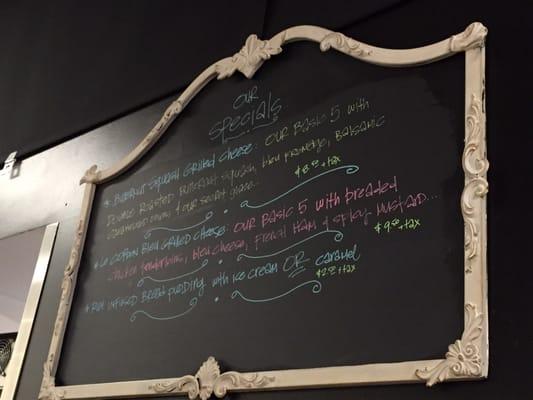 OUR
Specials
* Butternut Squash Grilled Cheese: OUR BASIC 5 with
Roasted Butternut Squash, bleu fromage, Balsamic
caramelized onions & our secret glaze...
$8.00 + tax
* Le Cordon Bleu Grilled Cheese: OUR BASIC 5 with breaded
Chicken tenderloins, bleu cheese, French Ham & spicy MUSTARD...
$9.50 + tax
* RUM INFUSED BREAD PUDDING with ice cream OR caramel
$2.50 + tax